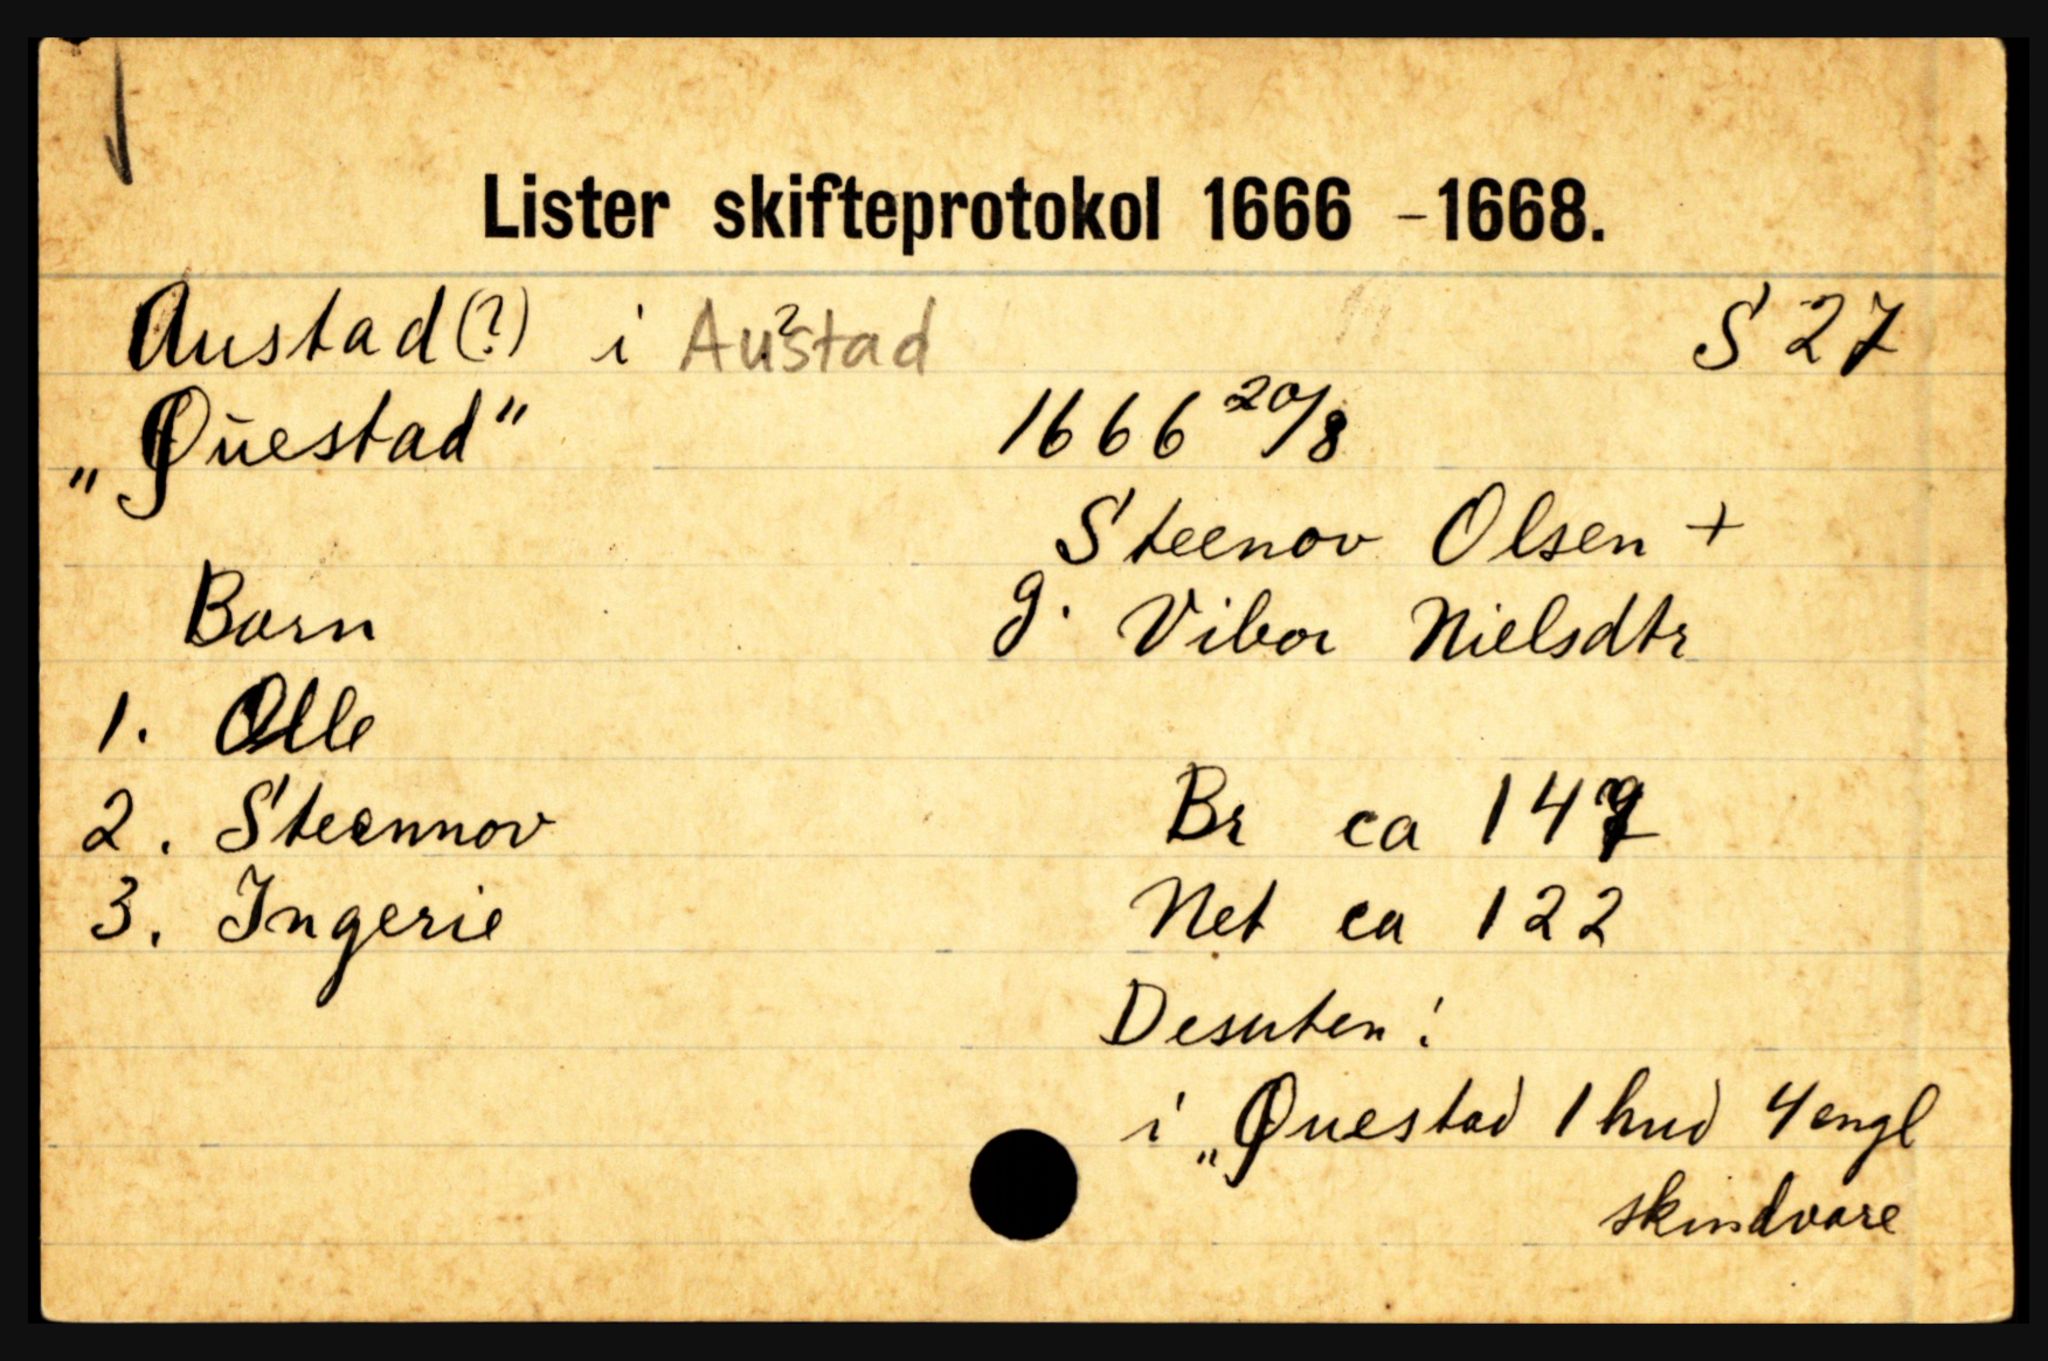 Lister skifteprotokol 1666 - 1668.
Austad (?) i Austad ? S 27
"Questad" 1666 20/8
Steenov Olsen +
Born g. Vibor Nielsdtr
1. Olle
2. Steennov Br ca 147
3. Ingerie Net ca 122
Desuten:
i "Questad 1 hud 4 engl
skindvare